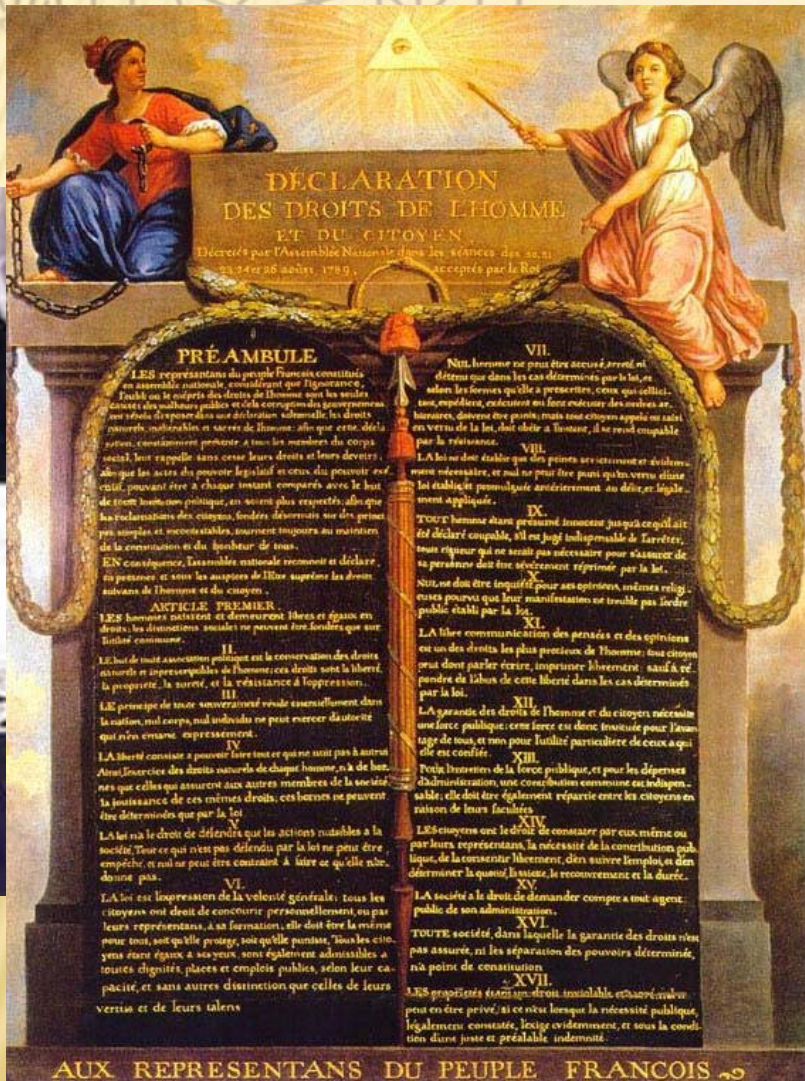 DÉCLARATION
DES DROITS DE L'HOMME
ET DU CITOYEN
Décretés par l'Assemblée Nationale dans les séances des 20, 21
23, 24 et 26 aoûst 1789, acceptés par le Roi
PRÉAMBULE
LES représentans du peuple François, constitués
en assemblée nationale, considérant que l'ignorance,
l'oubli ou le mépris des droits de l'homme sont les seules
causes des malheurs publics et de la corruption des gouvernemens
ont résolu d'exposer dans une déclaration solemnelle, les droits
naturels, inaliénables et sacrés de l'homme: afin que cette décla
ration, constamment présente a tous les membres du corps
social, leur rappelle sans cesse leurs droits et leurs devoirs;
afin que les actes du pouvoir législatif et ceux du pouvoir exé
cutif, pouvant être a chaque instant comparés avec le but
de toute institution politique, en soient plus respectés; afin que
les reclamations des citoyens, fondées désormais sur des princi
pes simples et incontestables, tournent toujours au maintien
de la constitution et du bonheur de tous.
EN conséquence, l'assemblée nationale reconnoit et déclare,
en presence et sous les auspices de l'Etre suprême les droits
suivans de l'homme et du citoyen.
ARTICLE PREMIER.
LES hommes naissent et demeurent libres et égaux en
droits; les distinctions sociales ne peuvent être fondées que sur
l'utilité commune.
II.
LE but de toute association politique est la conservation des droits
naturels et imprescriptibles de l'homme; ces droits sont la liberté,
la proprieté, la sureté, et la résistance à l'oppression.
III.
LE principe de toute souveraineté réside essentiellement dans
la nation, nul corps, nul individu ne peut exercer d'autorité
qui n'en émane expressement.
IV.
LA liberté consiste a pouvoir faire tout ce qui ne nuit pas à autrui
Ainsi, l'exercice des droits naturels de chaque homme, n'a de bor
nes que celles qui assurent aux autres membres de la société
la jouissance de ces mêmes droits; ces bornes ne peuvent
être déterminées que par la loi
V.
LA loi n'a le droit de défendre que les actions nuisibles a la
société. Tout ce qui n'est pas défendu par la loi ne peut être
empêché, et nul ne peut être contraint à faire ce qu'elle n'or-
donne pas.
VI.
LA loi est l'expression de la volonté générale; tous les
citoyens ont droit de concourir personnellement, ou par
leurs représentans, à sa formation; elle doit être la même
pour tous, soit qu'elle protege, soit qu'elle punisse. Tous les cito-
yens étant égaux à ses yeux, sont également admissibles a
toutes dignités, places et emplois publics, selon leur ca-
pacité, et sans autres distinction que celles de leurs
vertus et de leurs talens
VII.
NUL homme ne peut être accusé, arreté, ni
détenu que dans les cas déterminés par la loi, et
selon les formes qu'elle a prescrites, ceux qui sollici-
tent, expédient, exécutent ou font exécuter des ordres ar-
bitraires, doivent être punis; mais tout citoyen appelé ou saisi
en vertu de la loi, doit obéir a l'instant, il se rend coupable
par la résistance.
VIII.
LA loi ne doit établir que des peines strictement et évidem-
ment nécessaire, et nul ne peut être puni qu'en vertu d'une
loi établie et promulguée antérierement au délit, et légale-
ment appliquée.
IX.
TOUT homme étant présumé innocent jusqu'a ce qu'il ait
été déclaré coupable, s'il est jugé indispensable de l'arrêter,
toute rigueur qui ne serait pas nécessaire pour s'assurer de
sa personne doit être sévèrement réprimée par la loi.
X.
NUL ne doit être inquiété pour ses opinions, mêmes religi-
euses pourvu que leur manifestation ne trouble pas l'ordre
public établi par la loi.
XI.
LA libre communication des pensées et des opinions
est un des droits les plus précieux de l'homme; tout citoyen
peut donc parler écrire, imprimer librement: sauf à ré-
pondre de l'abus de cette liberté dans les cas déterminés
par la loi.
XII.
LA garantie des droits de l'homme et du citoyen nécessite
une force publique; cette force est donc instituée pour l'avan
tage de tous, et non pour l'utilité particuliere de ceux a qui
elle est confiée.
XIII.
POUR l'entretien de la force publique, et pour les dépenses
d'administration, une contribution commune est indispen-
sable; elle doit être également répartie entre les citoyens en
raison de leurs facultées
XIV.
LES citoyens ont le droit de constater par eux même ou
par leurs représentans, la nécessité de la contribution pub-
lique, de la consentir librement, d'en suivre l'emploi, et d'en
déterminer la quotité, l'assiete, le recouvrement et la durée.
XV.
LA société a le droit de demander compte a tout agent
public de son administration.
XVI.
TOUTE société, dans laquelle la garantie des droits n'est
pas assurée, ni les séparation des pouvoirs déterminée,
n'a point de constitution
XVII.
LES propriétés étant un droit inviolable et sacré, nul ne
peut en être privé, si ce n'est lorsque la nécessité publique,
légalement constatée, l'exige evidemment, et sous la condi-
tion d'une juste et préalable indemnité.
AUX REPRESENTANS DU PEUPLE FRANCOIS